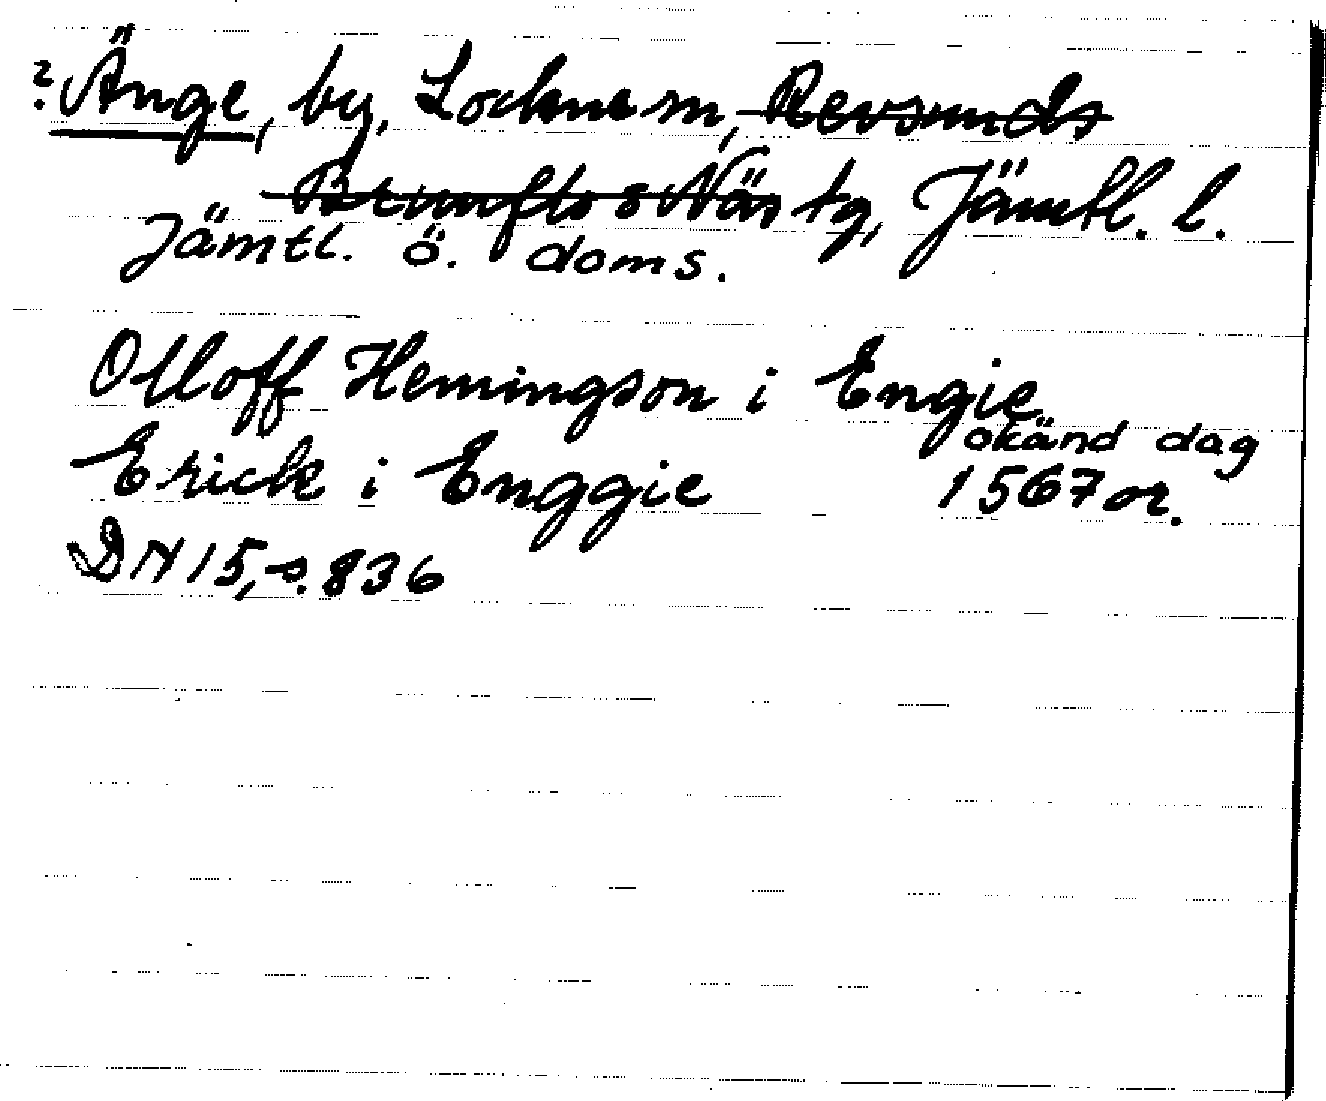 ? Änge, by, Lockne sn, Revsunds
Brunflo o Näs tg, Jämtl. l.
Jämtl. ö. doms.
Olloff Hemingson i Engie
Erick i Enggie okänd dag
1567 or.
DN 15, s. 836